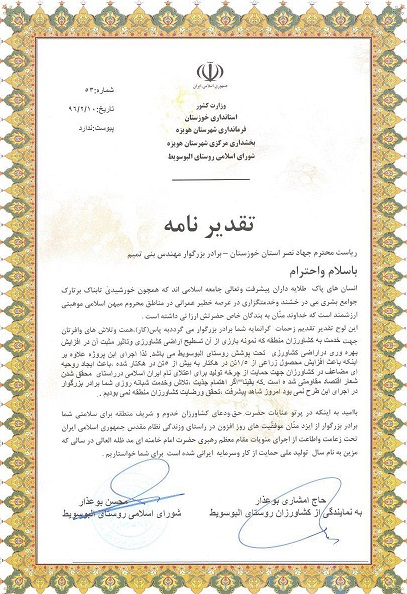 جمهوری اسلامی ایران
شماره:۵۳
تاریخ:۹۶/۲/۱۰
پیوست:ندارد
وزارت کشور
استانداری خوزستان
فرمانداری شهرستان هویزه
بخشداری مرکزی شهرستان هویزه
شورای اسلامی روستای البوسویط
تقدیر نامه
ریاست محترم جهاد نصر استان خوزستان – برادر بزرگوار مهندس بنی تمیم
باسلام واحترام
انسان های پاک طلایه داران پیشرفت وتعالی جامعه اسلامی اند که همچون خورشیدی تابناک برتارک
جوامع بشری می در خشند وخدمتگزاری در عرصه خطیر عمرانی در مناطق محروم میهن اسلامی موهبتی
ارزشمند است که خداوند منّان به بندگان خاص حضرتش ارزا نی داشته است .
این لوح تقدیر تقدیم زحمات گرانمایه شما برادر بزرگوار می گردد(به پاس)کار،همت وتلاش های وافرتان
جهت خدمت به کشاورزان منطقه که نمونه بارزی از آن تسطیح اراضی کشاورزی وتاثیر مثبت آن در افزایش
بهره وری دراراضی کشاورزی تحت پوشش روستای البوسویط می باشد. لذا اجرای این پروژه علاوه بر
اینکه باعث افزایش محصول زراعی از ۱/۵تن در هکتار به بیش از ۵تن در هکتار شده ،باعث ایجاد روحیه
ای مضاعف در کشاورزان جهت حمایت از چرخه تولید برای اعتلای نام ایران اسلامی درراستای محقق شدن
شعار اقتصاد مقاومتی شده است .که یقینا"اگر اهتمام جدیت ،تلاش وخدمت شبانه روزی شما برادر بزرگوار
در اجرای این طرح نمی بود امروز شاهد پیشرفت ،تحقق ورضایت کشاورزان منطقه نمی بودیم .
باامید به اینکه در پرتو عنایات حضرت حق ودعای کشاورزان خدوم و شریف منطقه برای سلامتی شما
برادر بزرگوار از ایزد منّان موفقیت های روز افزون در راستای وزندگی نظام مقدس جمهوری اسلامی ایران
تحت زعامت واطاعت از اجرای منویات مقام معظم رهبری حضرت امام خامنه ای مد ظله العالی در سالی که
مزین به نام سال تولید ملی حمایت از کار وسرمایه ایرانی شده است برای شما خواستاریم .
حاج امشاری بوعذار
به نمایندگی از کشاورزان روستای البوسویط
محسن بوعذار
شورای اسلامی روستای البوسویط